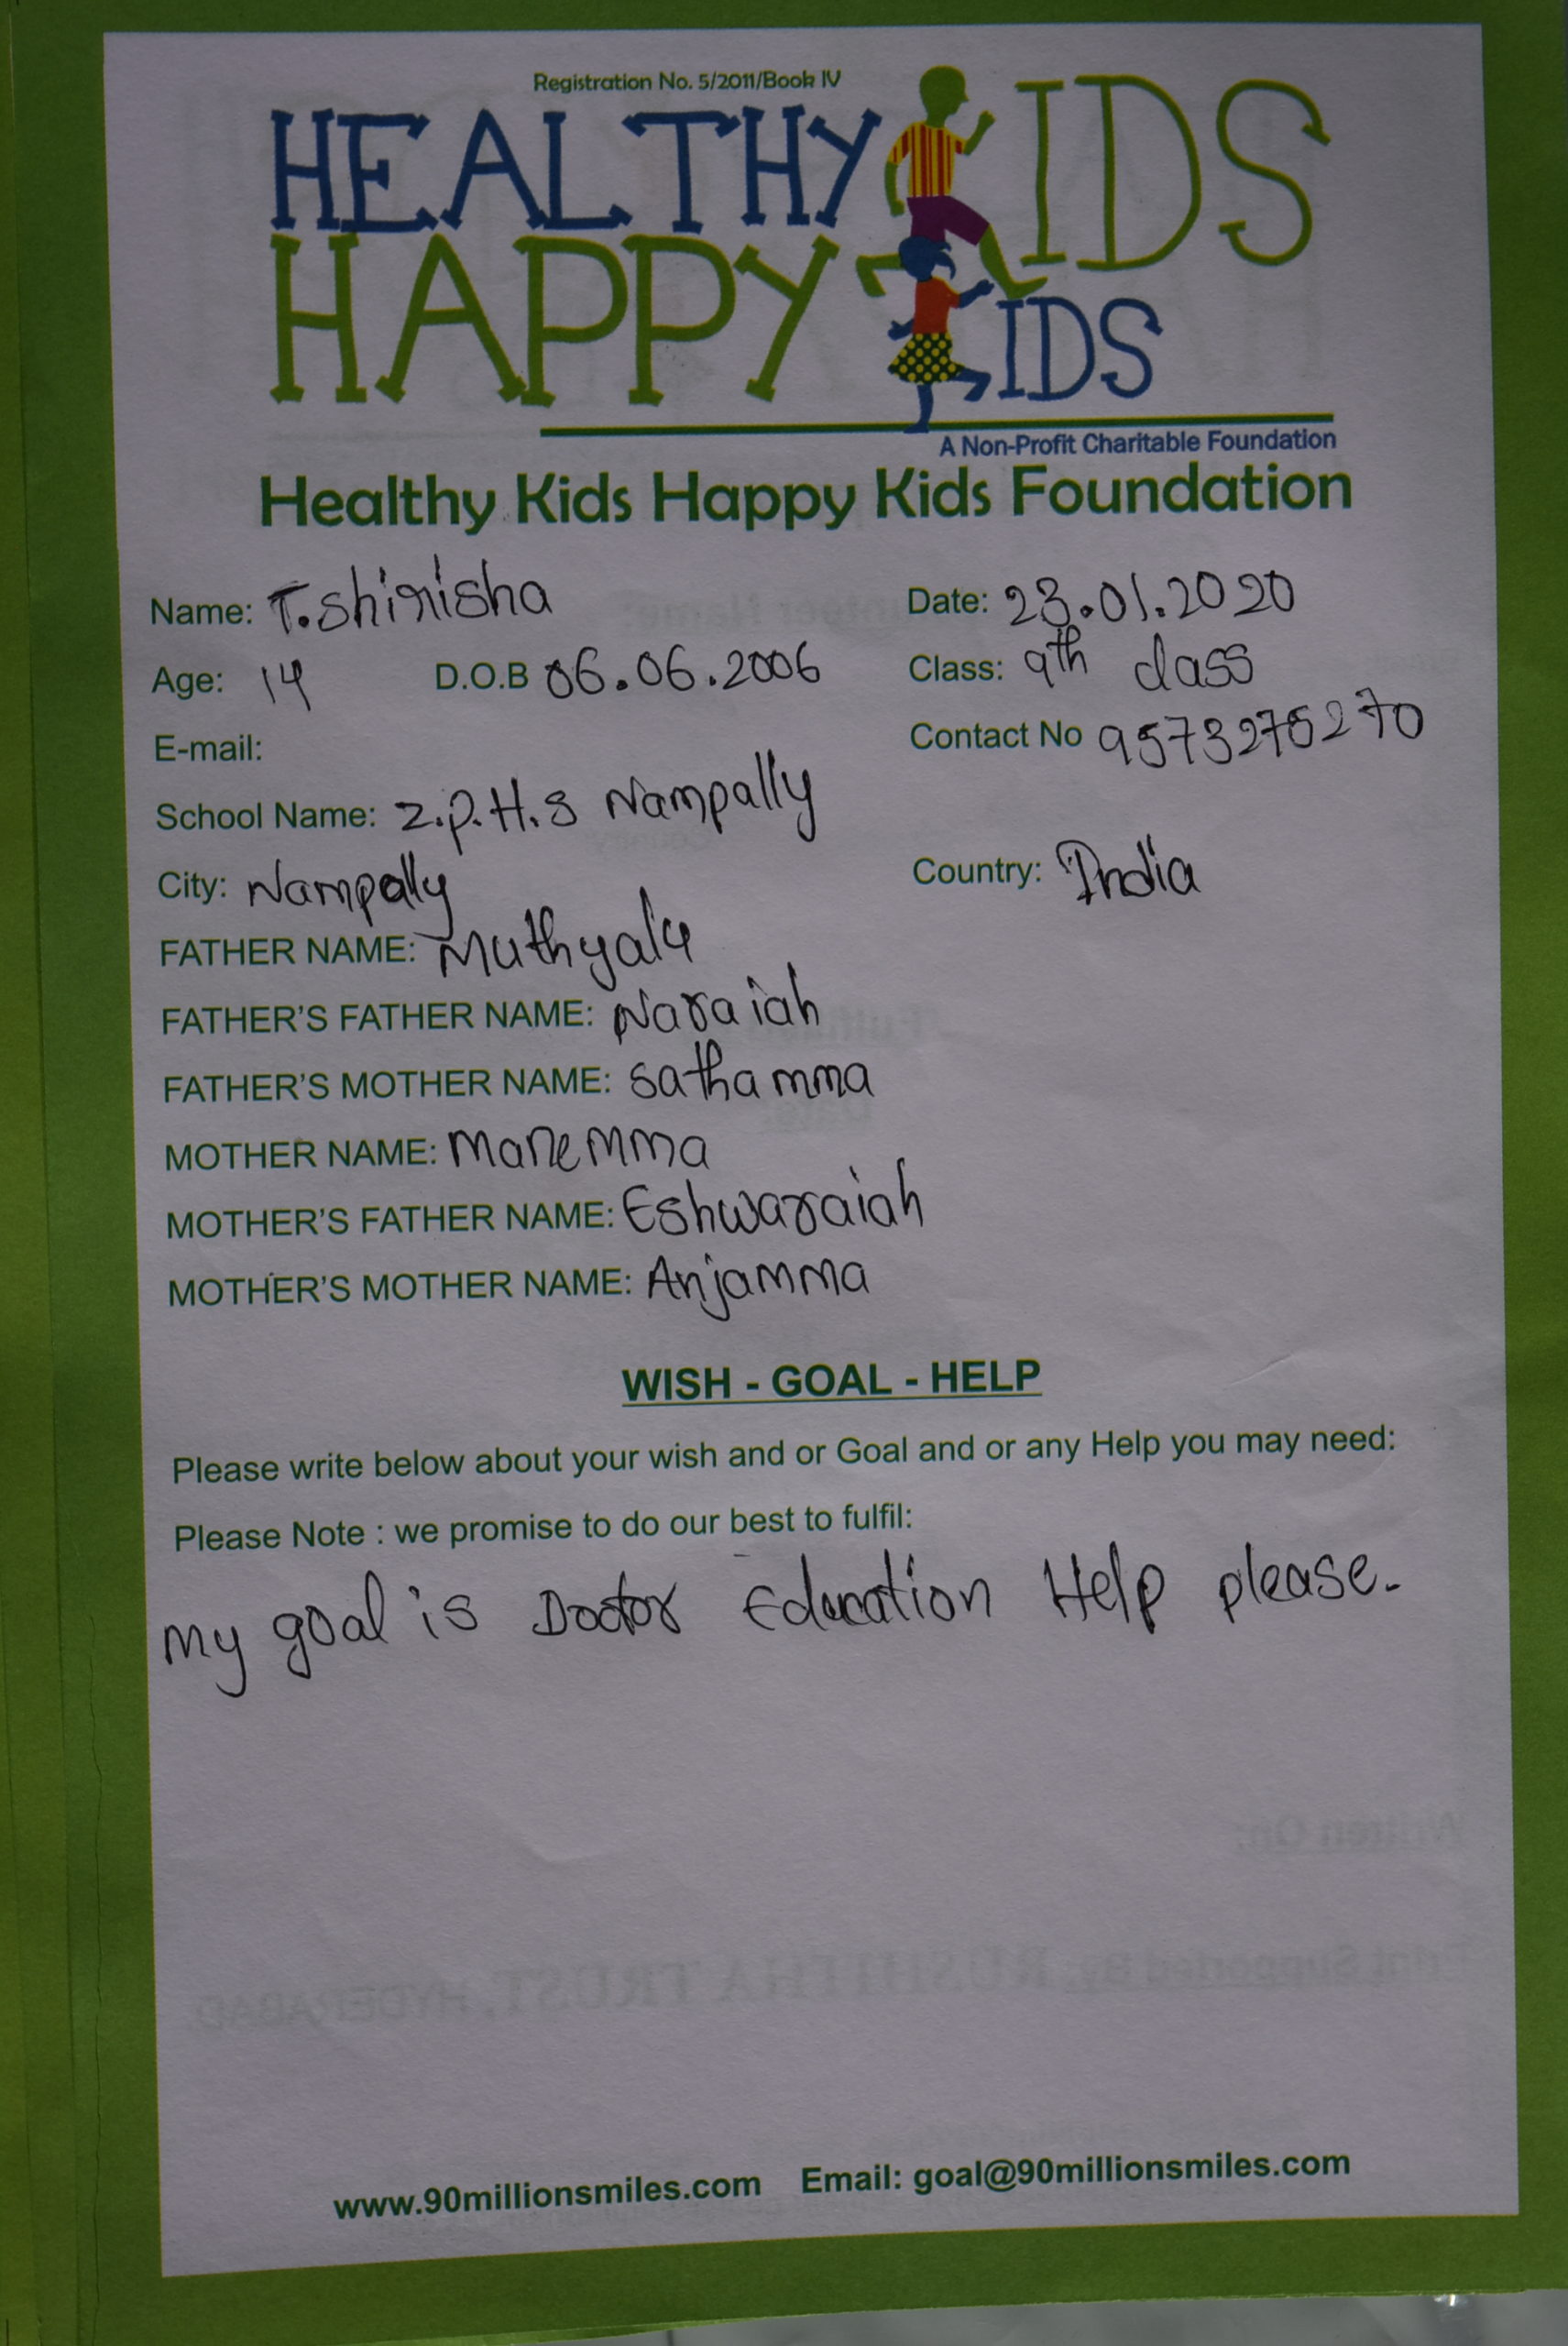 Registration No. 5/2011/Book IV
HEALTHY KIDS
HAPPY KIDS
A Non-Profit Charitable Foundation
Healthy Kids Happy Kids Foundation
Name: T.shirisha Date: 23.01.2020
Age: 14 D.O.B 06.06.2006 Class: 9th class
E-mail: Contact No 9573275270
School Name: Z.P.H.S Nampally
City: Nampally Country: India
FATHER NAME: Muthyalu
FATHER'S FATHER NAME: Naraiah
FATHER'S MOTHER NAME: sathamma
MOTHER NAME: Manemma
MOTHER'S FATHER NAME: Eshwaraiah
MOTHER'S MOTHER NAME: Anjamma
WISH - GOAL - HELP
Please write below about your wish and or Goal and or any Help you may need:
Please Note : we promise to do our best to fulfil:
My goal is Doctor Education Help please.
www.90millionsmiles.com Email: goal@90millionsmiles.com